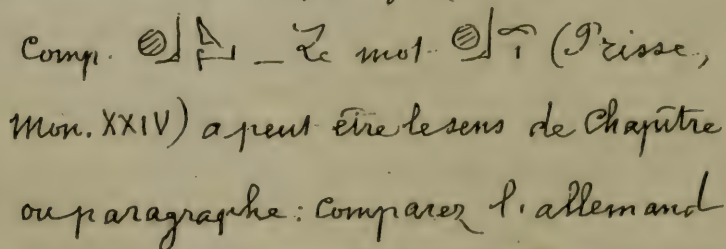 Comp. _ Le mot (Prisse,
Mon. XXIV) a peut être le sens de Chapitre
ou paragraphe : comparez l'allemand